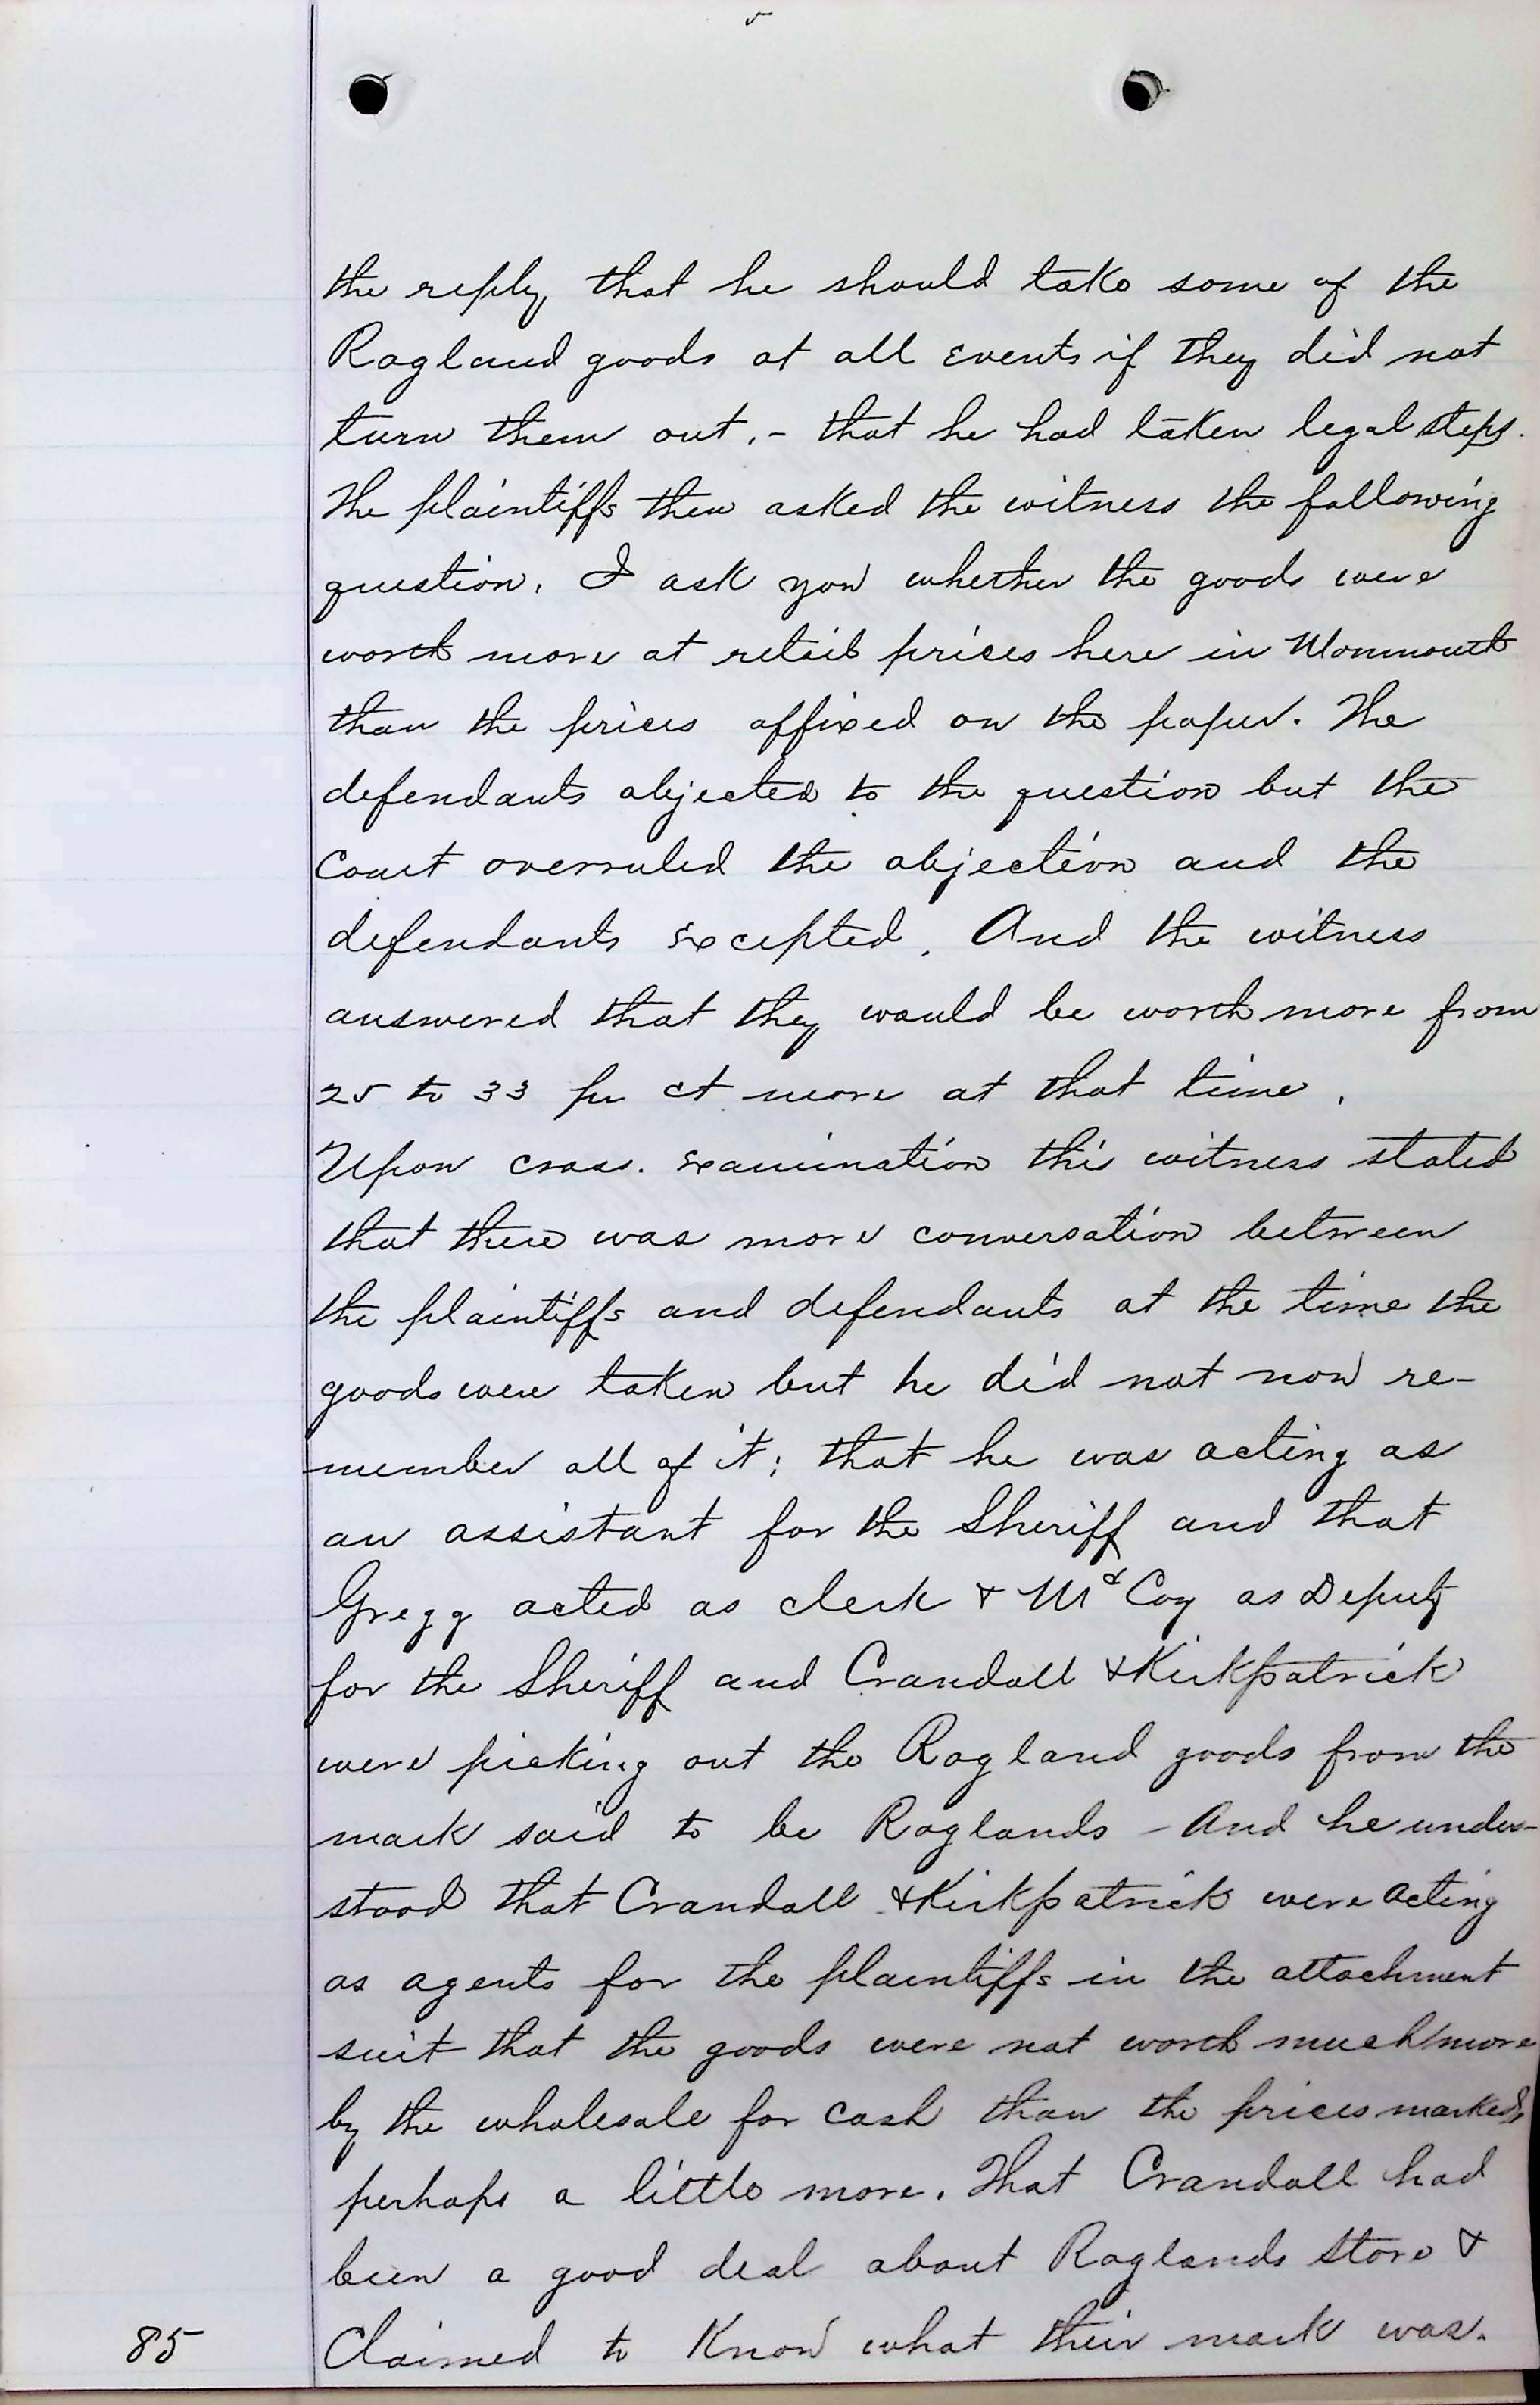 5
the reply, that he should take some of the
Ragland goods at all Events if they did not
turn them out, - that he had taken legal steps.
The plaintiffs then asked the witness the following
question. I ask you whether the goods were
worth more at retail prices here in Monmouth
than the prices affixed on the paper. The
defendants objected to the question but the
Court overruled the objection and the
defendants Excepted. And the witness
answered that they would be worth more from
25 to 33 per ct more at that time.
Upon cross. Examination this witness stated
that there was more conversation between
the plaintiffs and defendants at the time the
goods were taken but he did not now re-
member all of it; that he was acting as
an assistant for the Sheriff and that
Gregg acted as clerk & McCoy as Deputy
for the Sheriff and Crandall & Kirkpatrick
were picking out the Ragland goods from the
mark said to be Raglands - And he under-
stood that Crandall & Kirkpatrick were acting
as agents for the plaintiffs in the attachment
suit that the goods were not worth much more
by the wholesale for cash than the prices marked,
perhaps a little more. That Crandall had
been a good deal about Raglands Store &
85 Claimed to Know what their mark was.